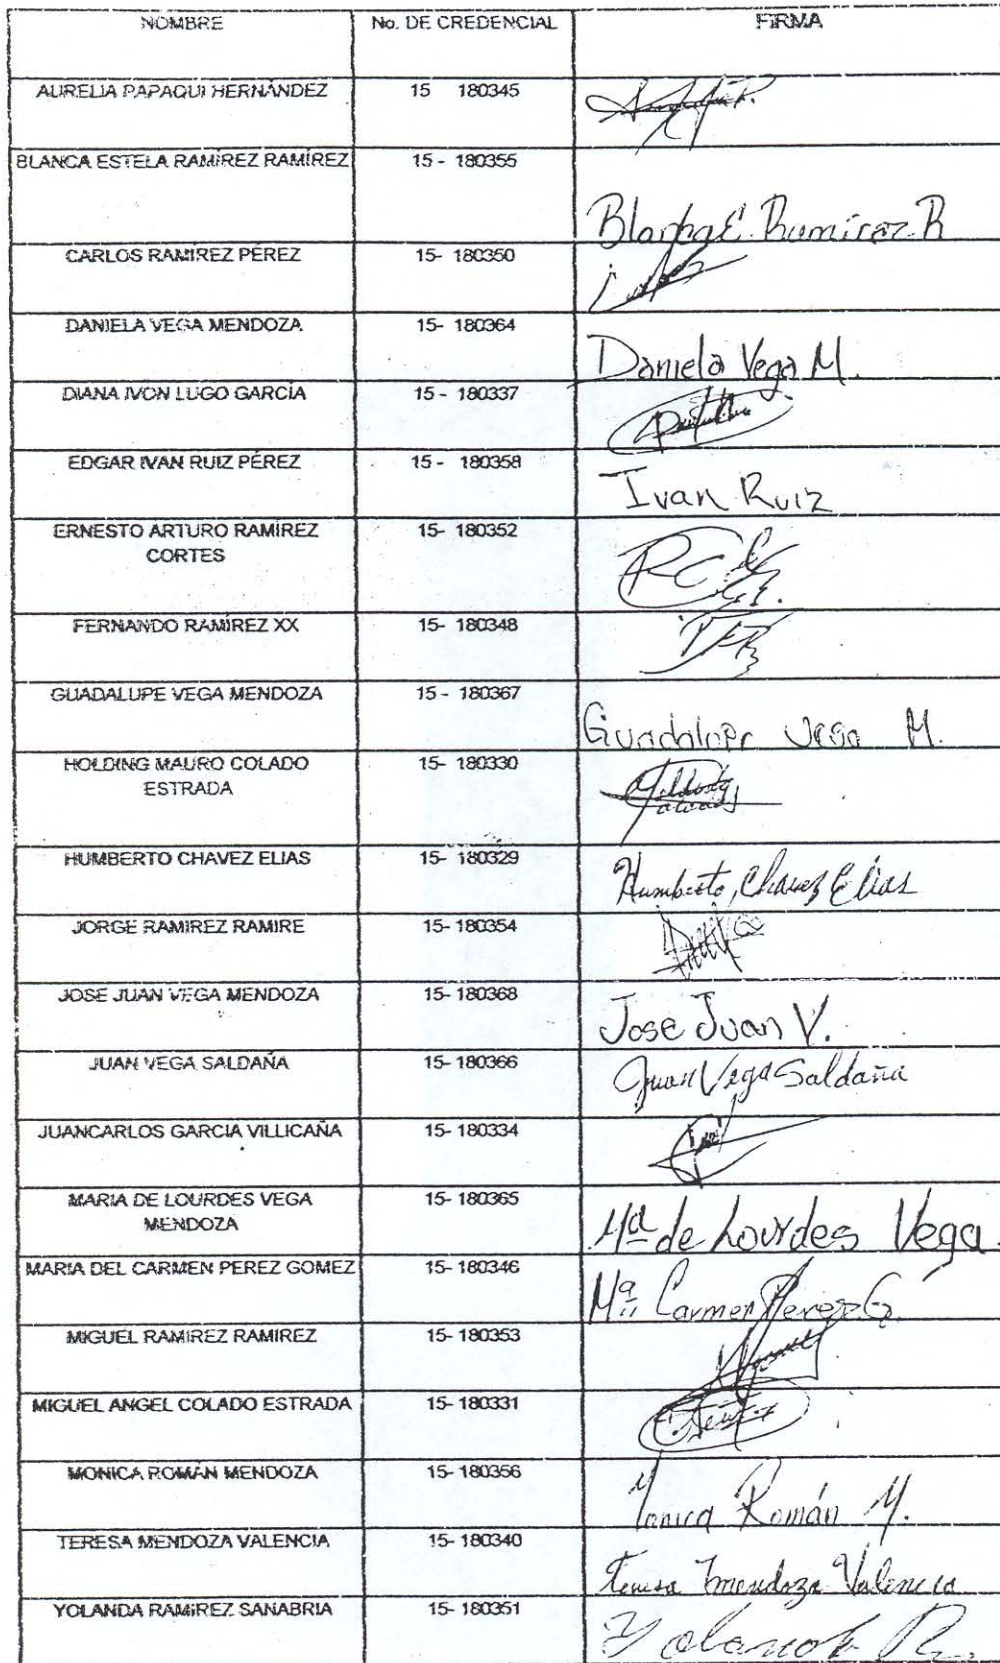 NOMBRE No. DE CREDENCIAL FIRMA
AURELIA PAPAQUI HERNÁNDEZ 15 180345
BLANCA ESTELA RAMÍREZ RAMÍREZ 15 - 180355 Blanca E. Ramirez R
CARLOS RAMÍREZ PÉREZ 15- 180350
DANIELA VEGA MENDOZA 15- 180364 Daniela Vega M.
DIANA IVON LUGO GARCÍA 15 - 180337
EDGAR IVAN RUIZ PÉREZ 15 - 180358 Ivan Ruiz
ERNESTO ARTURO RAMÍREZ 15- 180352
CORTES
FERNANDO RAMÍREZ XX 15- 180348
GUADALUPE VEGA MENDOZA 15 - 180367 Guadalupe Vega M.
HOLDING MAURO COLADO 15- 180330
ESTRADA
HUMBERTO CHAVEZ ELIAS 15- 180329 Humberto Chavez Elias
JORGE RAMIREZ RAMIRE 15- 180354
JOSE JUAN VEGA MENDOZA 15- 180368 Jose Juan V.
JUAN VEGA SALDAÑA 15- 180366 Juan Vega Saldaña
JUANCARLOS GARCIA VILLICAÑA 15- 180334
MARIA DE LOURDES VEGA 15- 180365 Ma de Lourdes Vega.
MENDOZA
MARIA DEL CARMEN PEREZ GOMEZ 15- 180346 Ma Carmen Perez G.
MIGUEL RAMIREZ RAMIREZ 15- 180353
MIGUEL ANGEL COLADO ESTRADA 15- 180331
MONICA ROMÁN MENDOZA 15- 180356 Monica Román M.
TERESA MENDOZA VALENCIA 15- 180340 Teresa Mendoza Valencia
YOLANDA RAMÍREZ SANABRIA 15- 180351 Yolanda R.